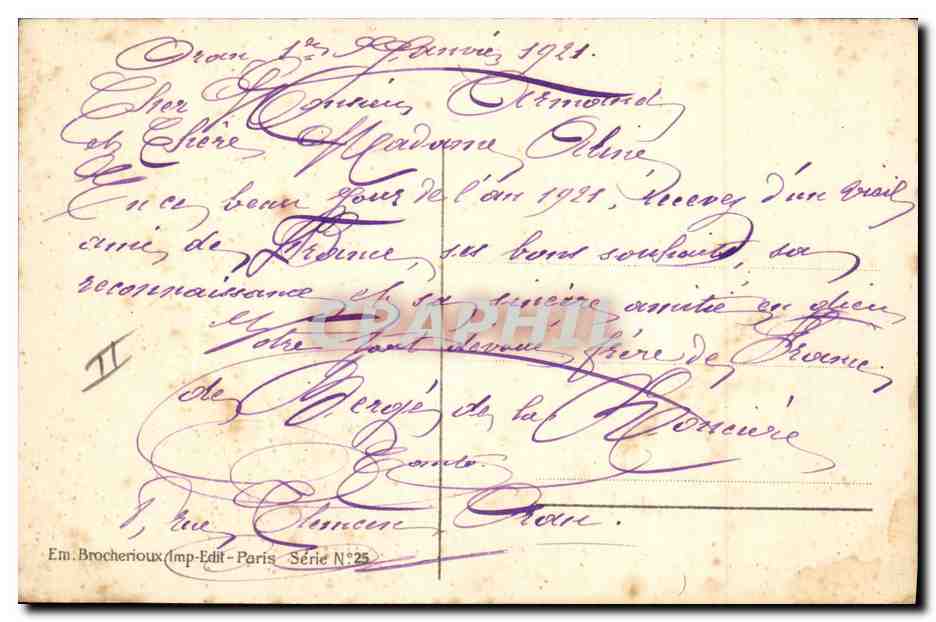 Oran, 1er Janvier 1921.
Cher Monsieur Armand,
et Chère Madame Aline
En ce beau jour de l'an 1921, Recevez d'un vieil
ami de France, ses bons souhaits, sa
reconnaissance et sa sincère amitié en Dieu
Votre tout dévoué frère de France,
de Bergés de la
8, rue Clemen, Oran.
CPAPHIL
II
Em. Brocherioux, Imp-Edit-Paris Série N°25